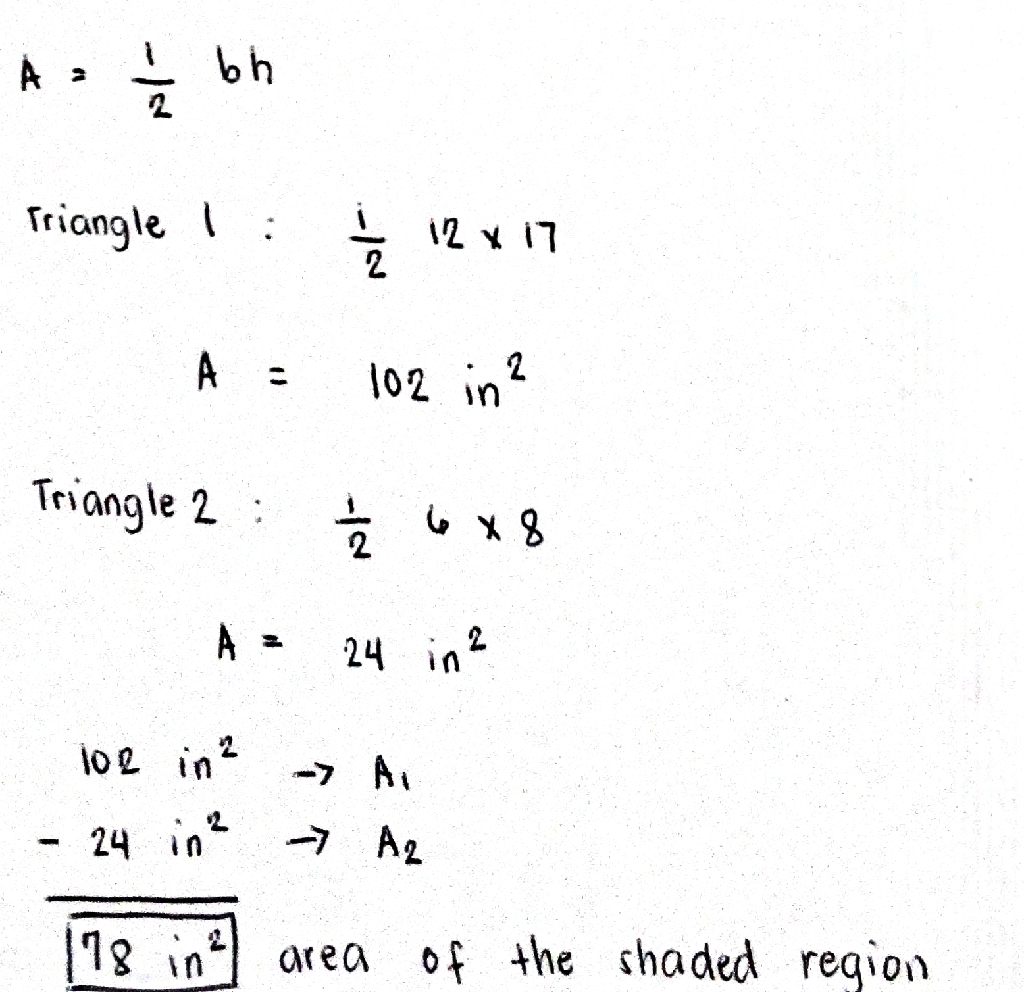 A = 1/2 bh
Triangle 1 : 1/2 12 x 17
A = 102 in²
Triangle 2 : 1/2 6 x 8
A = 24 in²
102 in² -> A₁
- 24 in² -> A₂
78 in² area of the shaded region